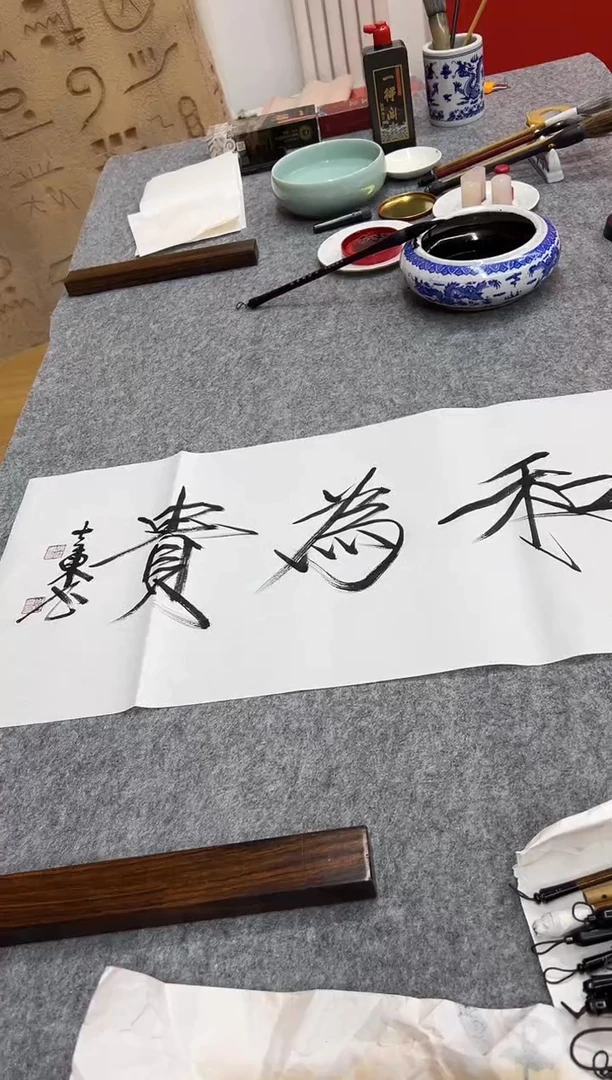 和為貴
一得阁